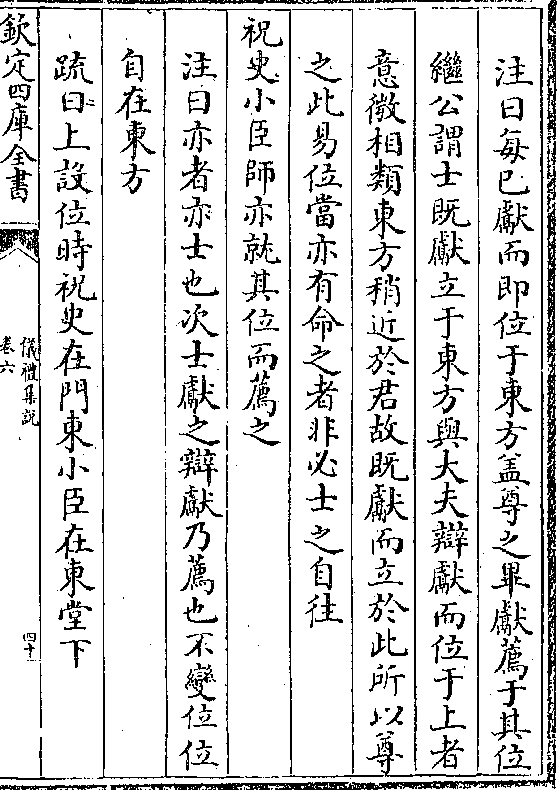 注曰每已獻而即位于東方盖尊之畢獻薦于其位
繼公謂士既獻立于東方與大夫辯獻而位于上者
意微相類東方稍近於君故既獻而立於此所以尊
之此易位當亦有命之者非必士之自往
祝史小臣師亦就其位而薦之
注曰亦者亦士也次士獻之辯獻乃薦也不變位位
自在東方
疏曰上設位時祝史在門東小臣在東堂下
欽定四庫全書
儀禮集説
卷六
四十一